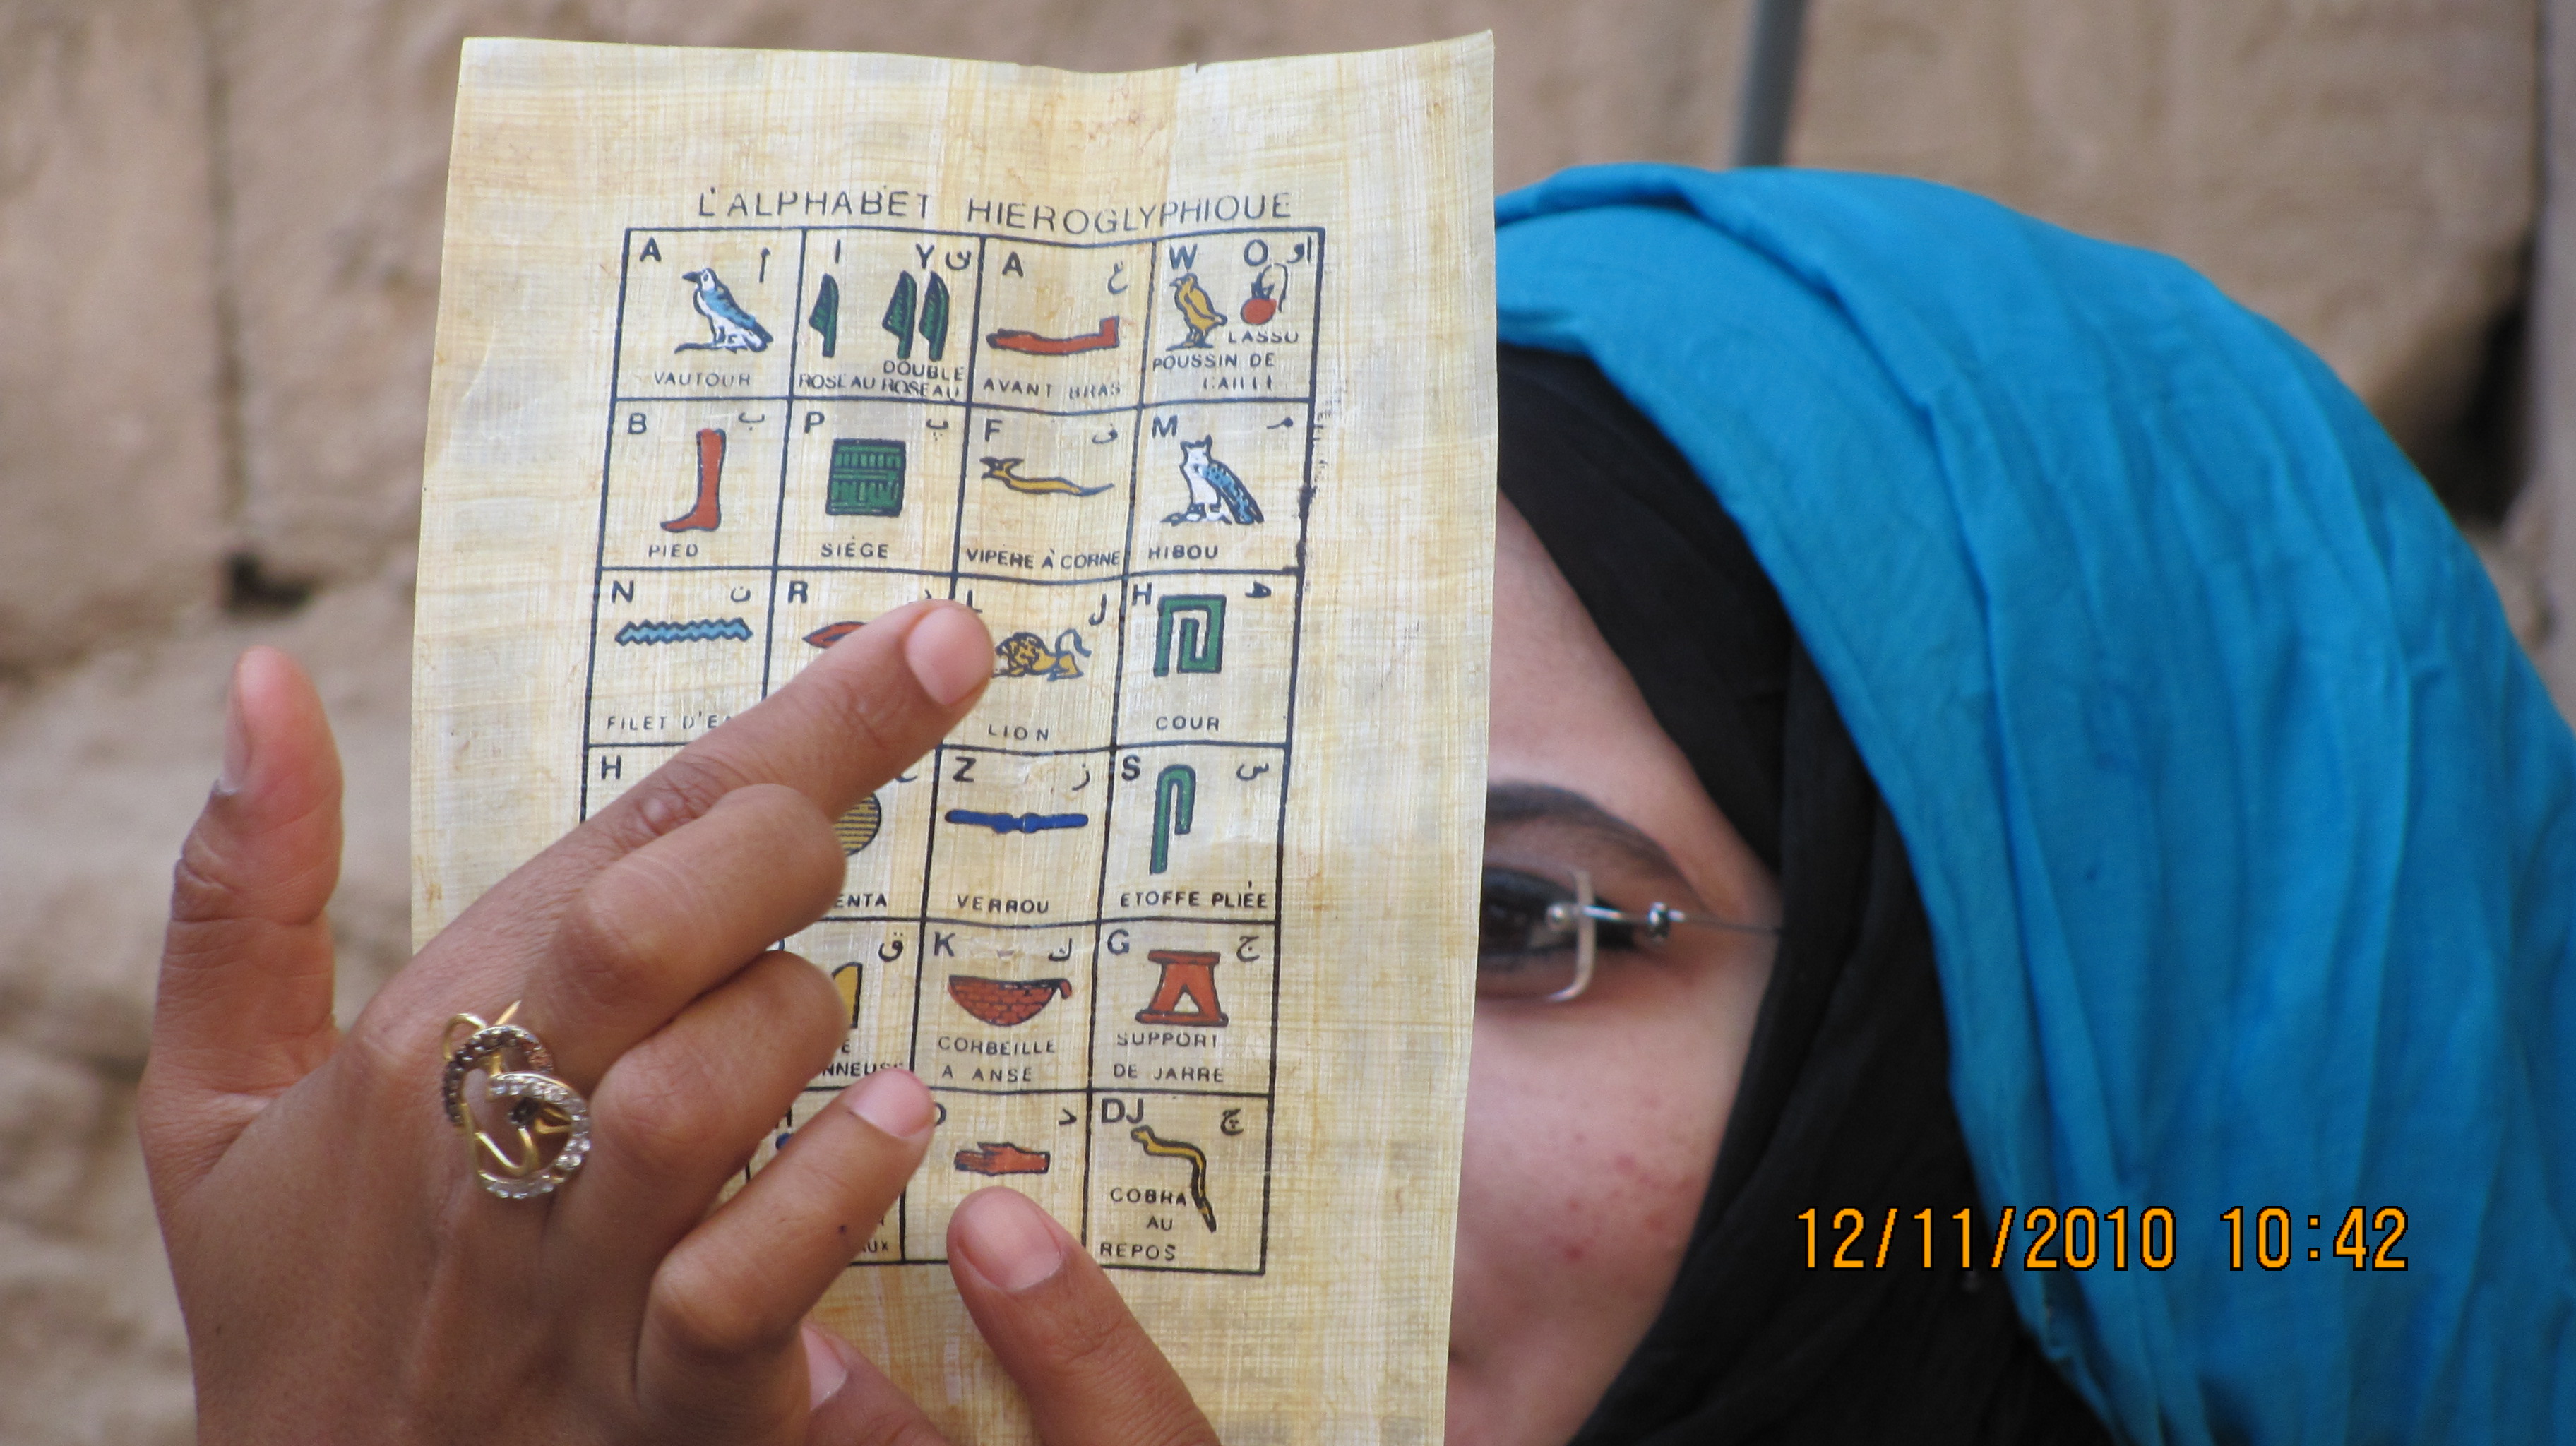 L'ALPHABET HIEROGLYPHIQUE
A أ
VAUTOUR
I Y ى
ROSEAU DOUBLE ROSEAU
A ع
AVANT BRAS
W O او
LASSO
POUSSIN DE
CAILLE
B ب
PIED
P پ
SIÈGE
F ف
VIPÈRE À CORNE
M م
HIBOU
N ن
FILET D'E
R
L ل
LION
H ه
COUR
H
ENTA
Z ز
VERROU
S س
ETOFFE PLIÉE
ق
E
NNEUSE
K ك
CORBEILLE
A ANSE
G ج
SUPPORT
DE JARRE
H
UX
D د
DJ چ
COBRA
AU
REPOS
12/11/2010 10:42